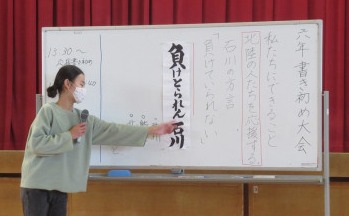 六年 書き初め大会
私たちにできること
北陸の人たちを応援する
石川の方言
「負けていられない」
負けとられん石川
13:30～